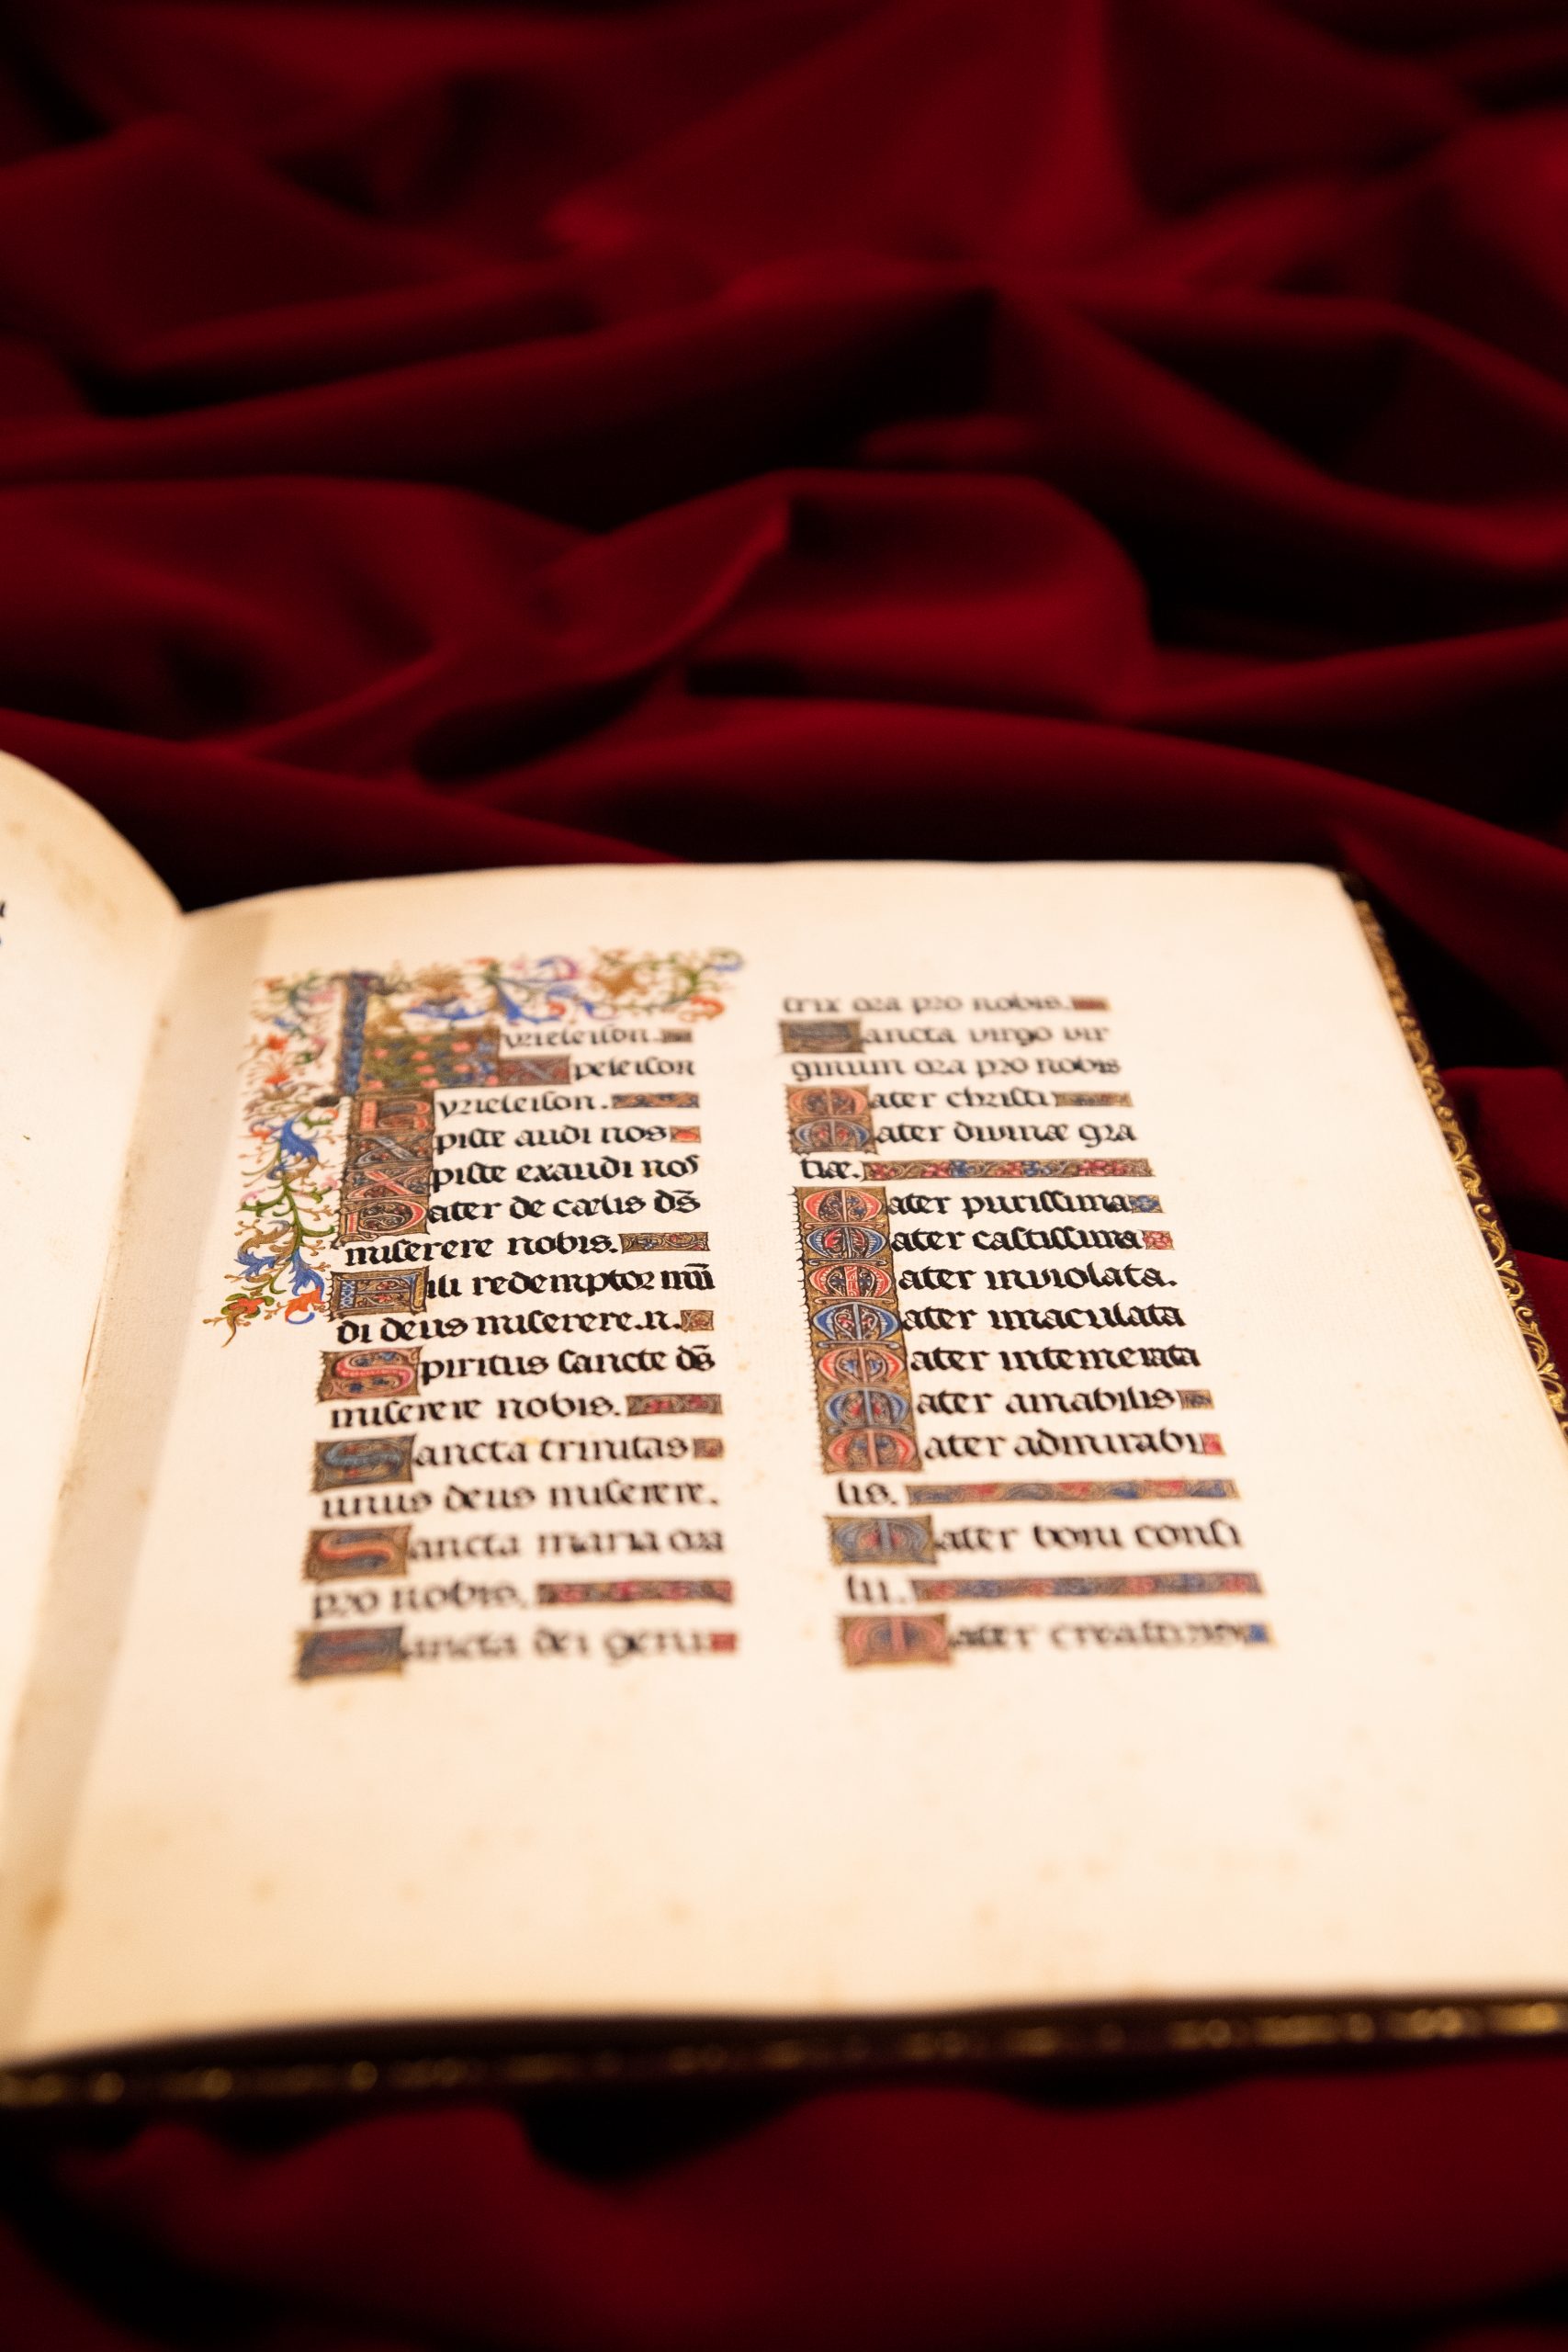 Kyrieleison.
Xpeleison
Kyrieleison.
Xpiste audi nos
Xpiste exaudi nos
Pater de cælis ds̄
miserere nobis.
Fili redemptor mū
di deus miserere.n.
Spiritus sancte ds̄
miserere nobis.
Sancta trinitas
unus deus miserere.
Sancta maria ora
pro nobis.
Sancta dei geni
trix ora pro nobis.
Sancta virgo vir
ginum ora pro nobis
Mater christi
Mater divinæ gra
tiæ.
Mater purissima
Mater castissima
Mater inviolata.
Mater imaculata
Mater intemerata
Mater amabilis
Mater admirabi
lis.
Mater boni consi
lii.
Mater creatoris